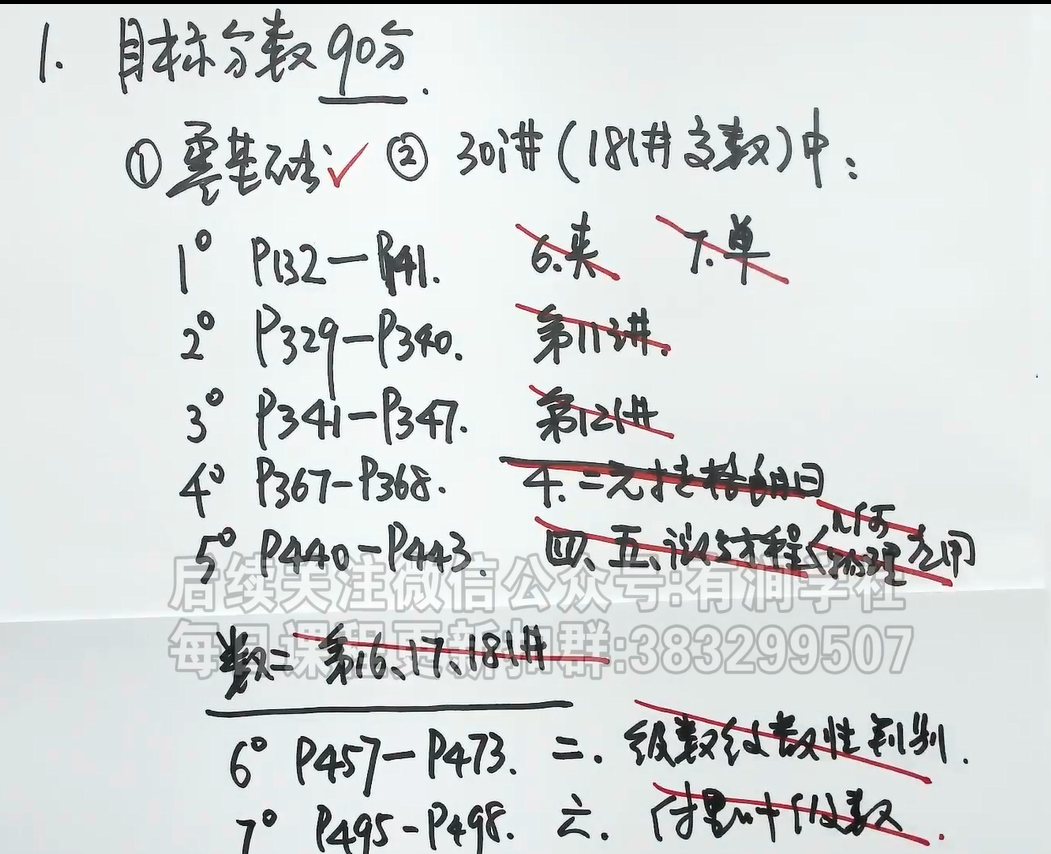 1. 目标分数90分.
① 零基础✓ ② 30讲(18讲高数)中:
1° P132—P141. 6.夹 7.单
2° P329—P340. 第11讲.
3° P341—P347. 第12讲
4° P367-P368. 4.二元拉格朗日
5° P440-P443. 四、五、微分方程<几何 物理 应用
后续关注微信公众号:有润学社
每日课程更新扣群:383299507
数二 第16、17、18讲
6° P457-P473. 二. 级数敛散性判别.
7° P495-P498. 六. 傅里叶级数.